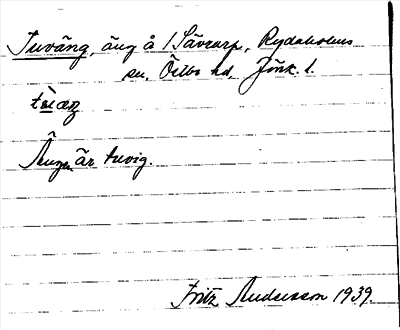 Tuväng, äng å 1 Sävrarp, Rydaholms
sn, Östbo hd, Jönk. l.
Ängen är tuvig.
Fritz Andersson 1939.